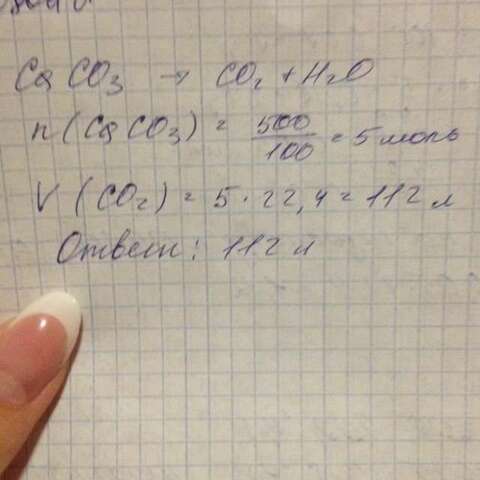 CaCO3 → CO2 + H2O
n(CaCO3) = 500/100 = 5 моль
V(CO2) = 5 · 22,4 = 112 л
Ответ: 112 л